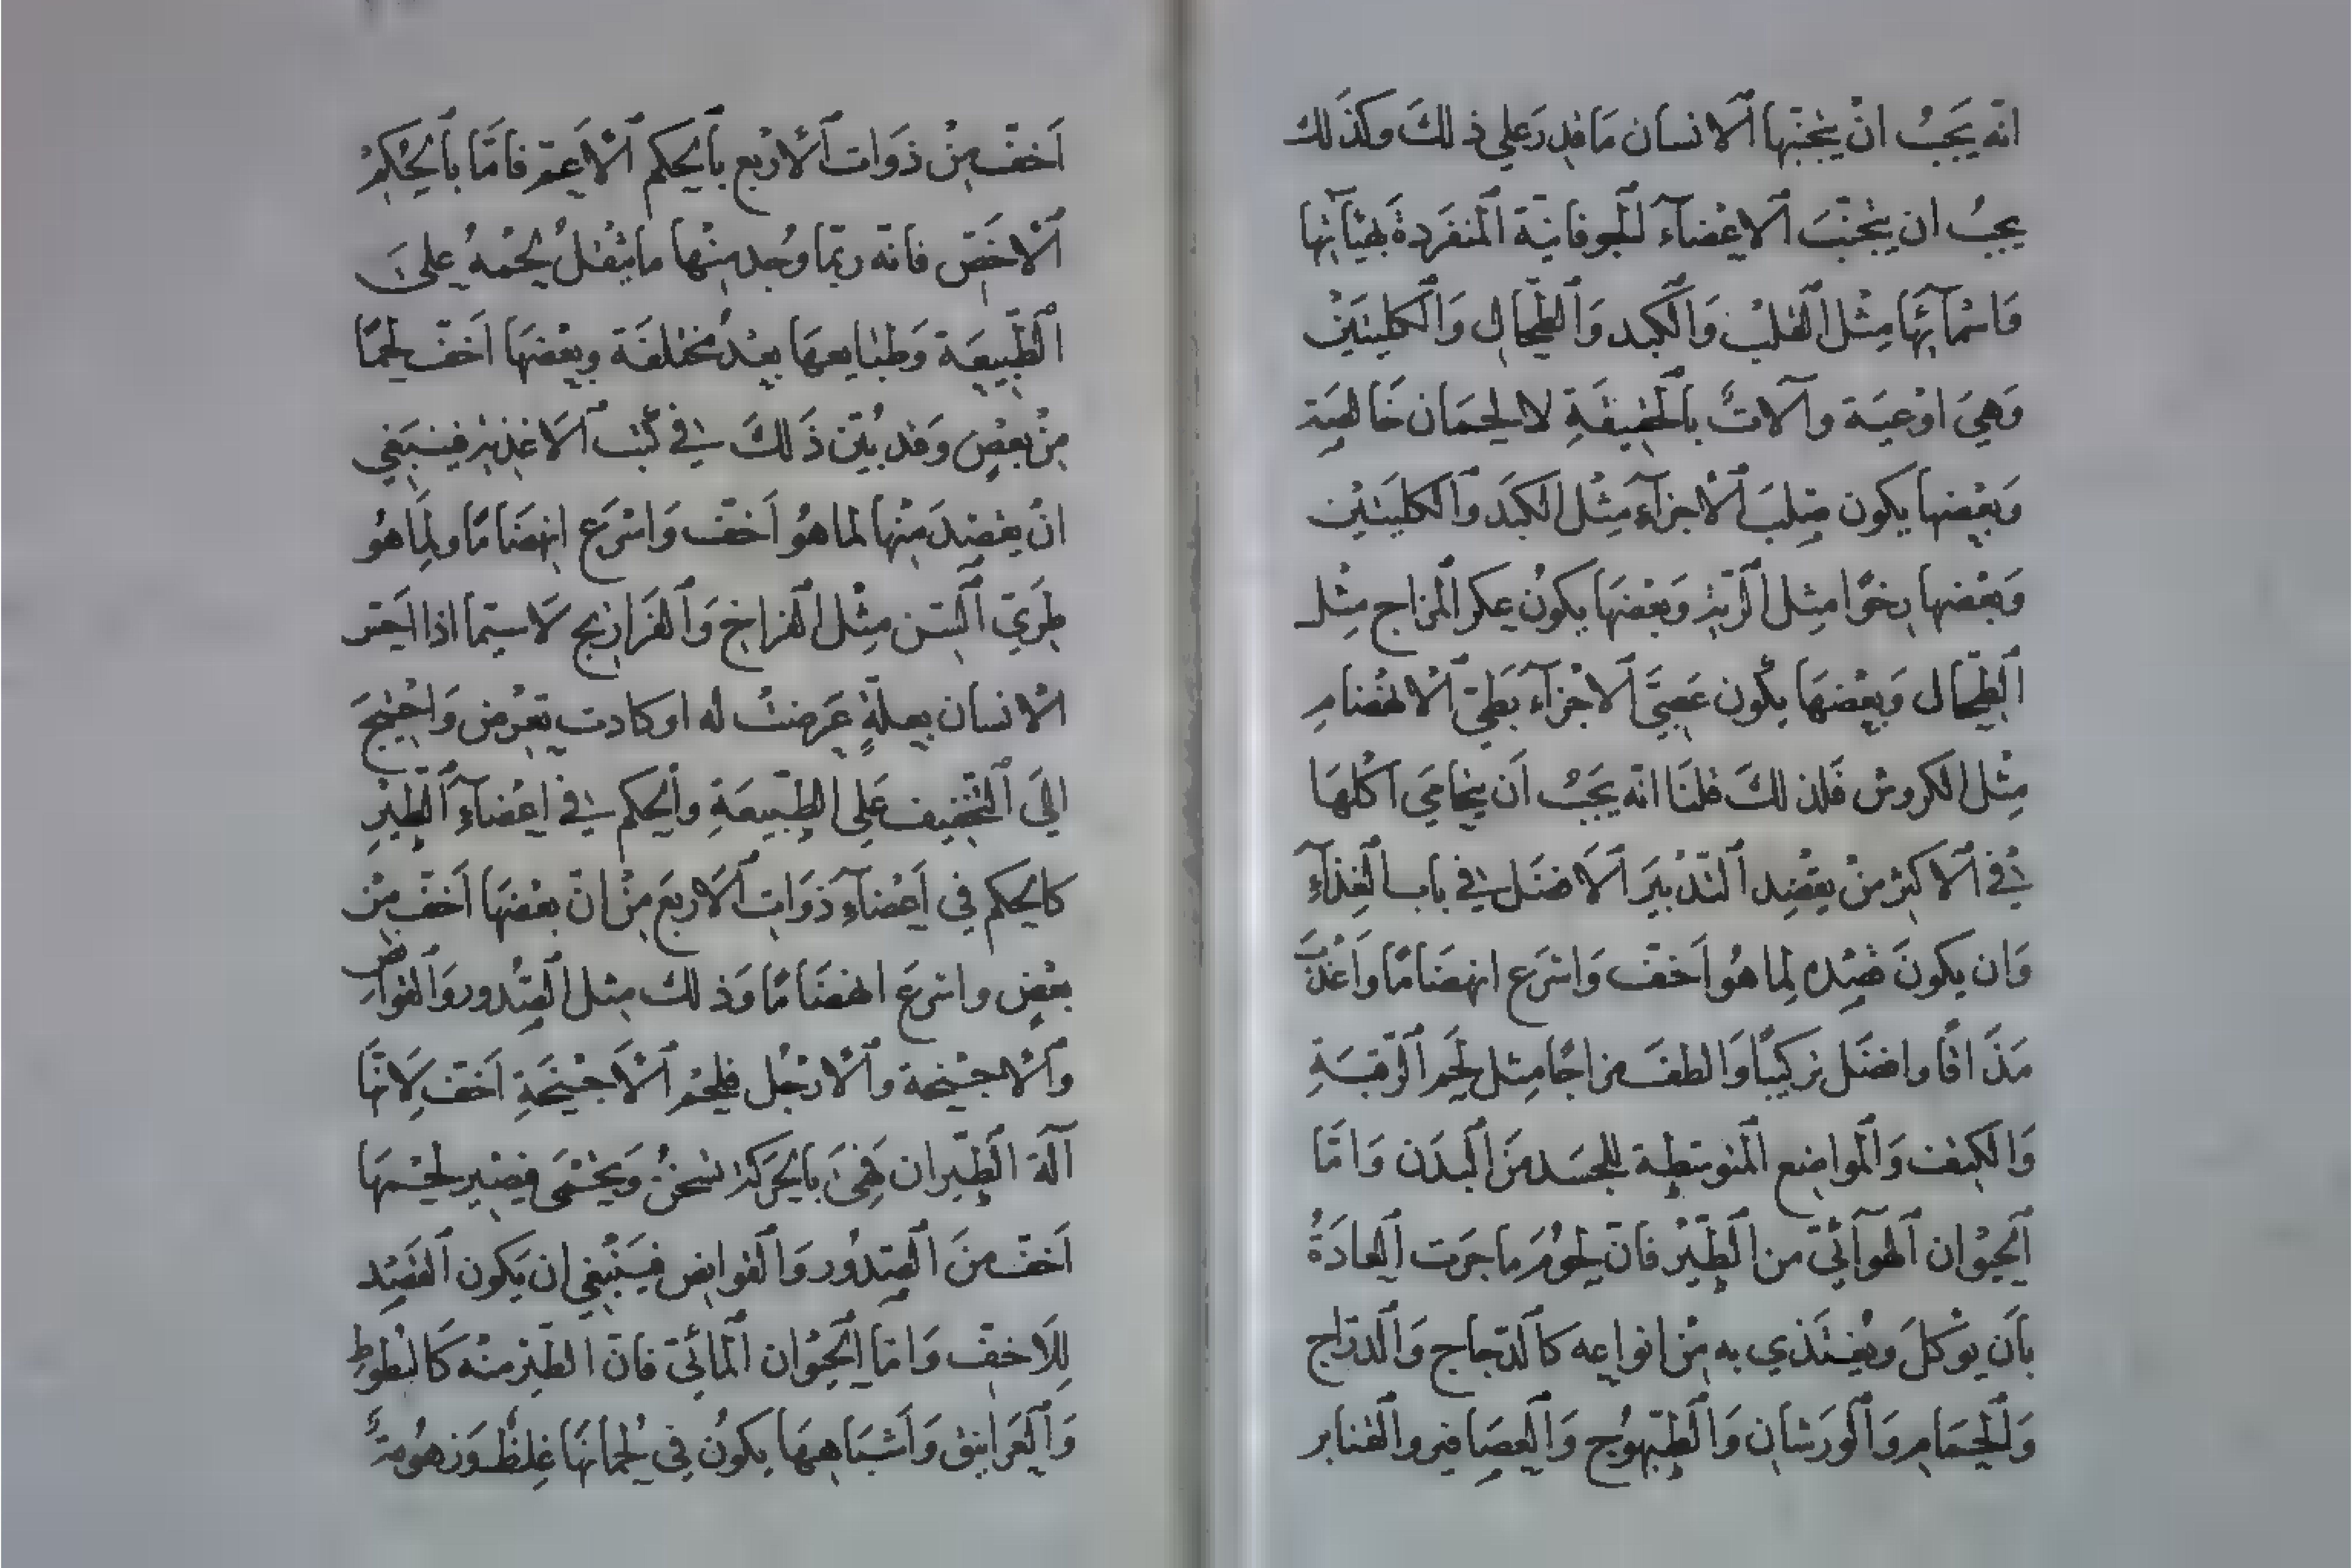 انّه يَجَبُ انْ يتجنّبها ٱلانسان مَا قدِر عَلي ذلكَ وكذَلك
يجبُ ان يتجنّبَ ٱلاعْضآءَ ٱلجوفانيّة ٱلمنفَردةَ بهيْآتها
وَاسْمآئِهَا مِثْل ٱلقلبْ وَٱلكبد وَٱلطّحال وَٱلكليتَينْ
وَهيَ اوْعيَة وآلاتٌ بٱلحَقيقَةِ لا لحمَان خَالصَة
وَبعْضهَا يكون صَلبَ ٱلاجزآءِ مثْل ٱلكبَد وَٱلكليَتيْن
وَبَعْضهَا رخوًا مثِل ٱلرّيَة وَبَعْضهَا يكَونُ عكر ٱلمزاج مثْل
ٱلطّحال وَبعْضهَا يكُون عَصَبيَّ ٱلاجْزآءَ بَطيّ ٱلانهْضَام
مثْل ٱلكروش فَلذلكَ قلنَا انّه يَجَبُ اَن يتحَامَي اَكلهَا
في ٱلاكثر منْ يقصْد ٱلتّدْبيَر ٱلاَفضَل في باب ٱلغذآءِ
وَان يكونَ قصْده لِما هُو اَخفّ وَاسْرَع انهضَامًا وَاَعْذَبَ
مَذَاقًا وافضَل تركيبًا وَالطفَ مزاجًا مثِل لحَم ٱلرّقبَةِ
وَٱلكتف وَٱلمواضع ٱلمتوسّطة للجسَد منَ ٱلبدَن وَامّا
ٱلحيْوان ٱلهوآئيّ من ٱلطّيْر فانّ لحوُم مَا جَرَت ٱلعادَةُ
بأن يوكلَ ويُغتَذي به منْ انواعِه كٱلدّجاج وَٱلدرّاج
وَٱلحمَام وَٱلورَشان وَٱلطّيهوُج وَٱلعصَافير وٱلقنابر
اَخفّ منْ ذوَات ٱلاربْع بٱلحكم ٱلاعَمّ فامّا بٱلحُكمْ
ٱلاخَصّ فانّه ربّما وجُد منْها ما يثْقلُ لحُمهُ عليَ
ٱلطّبيعَة وَطبَايعهَا بعْدُ مختلفَة وبعْضهَا اَخفّ لحمًا
منْ بعض وَقد بُيّن ذَلكَ في كتُب ٱلاغذية فينبَغي
انْ يقصْدَ منْها لما هوُ اَخفّ وَاسْرَع انهضَامًا ولِمَا هوُ
طَريّ ٱلسّن مثْل ٱلفراخ وَٱلفَراريج لاسيّما اذا اَحَسّ
ٱلانسان بعلّةٍ عَرضتْ له او كادت تعْرض وَاحْتيجَ
الَي ٱلتّخفيف عَلي ٱلطّبيعَةِ وٱلحكم في اعْضآءِ ٱلطّيْرِ
كٱلحكم في اَعْضآءِ ذوَات ٱلاربَع منْ انّ بعْضهَا اَخفّ منْ
بعْض واسْرعَ انهضَامًا وَذلكَ مثل ٱلصّدُور وَٱلقوانص
وَٱلاجْنحة وٱلارْجُل فلحْم ٱلاَجْنحَةِ اَخفّ لاَنّهَا
آلَة ٱلطّيران فهيَ بٱلحَركة تسْخنُ وَتحْمَى فيصَير لحْمهَا
اَخفّ منَ ٱلصّدُور وَٱلقوانص فيَنْبغي ان يَكون ٱلقصْد
لِلاَخفّ وَامّا ٱلحيْوان ٱلمآئيّ فانّ ٱلطّيْر منْه كَٱلبُطوط
وَٱلغَرانيق وَاَشْبَاههَا يكونُ في لحُمانهَا غِلظٌ وَزهوُمَةٌ